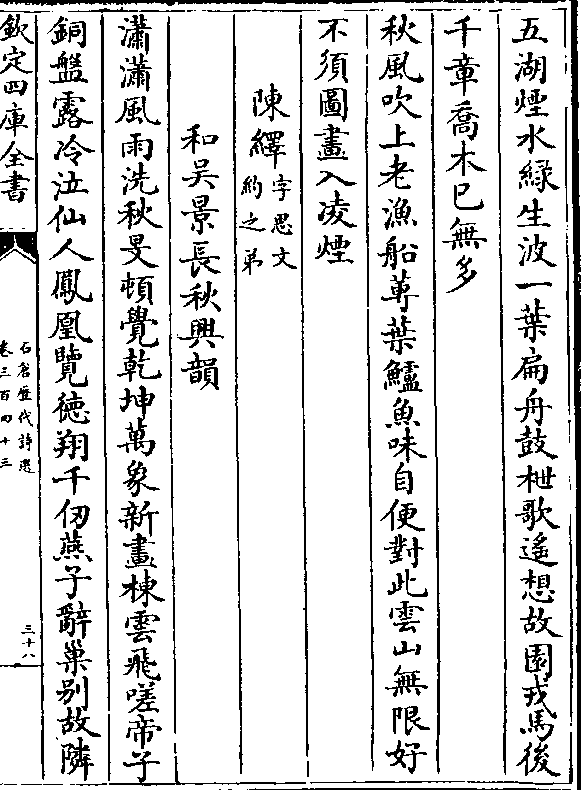 五湖煙水緑生波一葉扁舟鼓枻歌遙想故園戎馬後
千章喬木已無多
秋風吹上老漁船蓴葉鱸魚味自便對此雲山無限好
不須圖畫入凌煙
陳繹字思文
約之弟
和吴景長秋興韻
瀟瀟風雨洗秋旻頓覺乾坤萬象新畫棟雲飛嗟帝子
銅盤露冷泣仙人鳳凰覽徳翔千仞燕子辭巢别故隣
欽定四庫全書
石倉歴代詩選
卷三百四十三
三十八